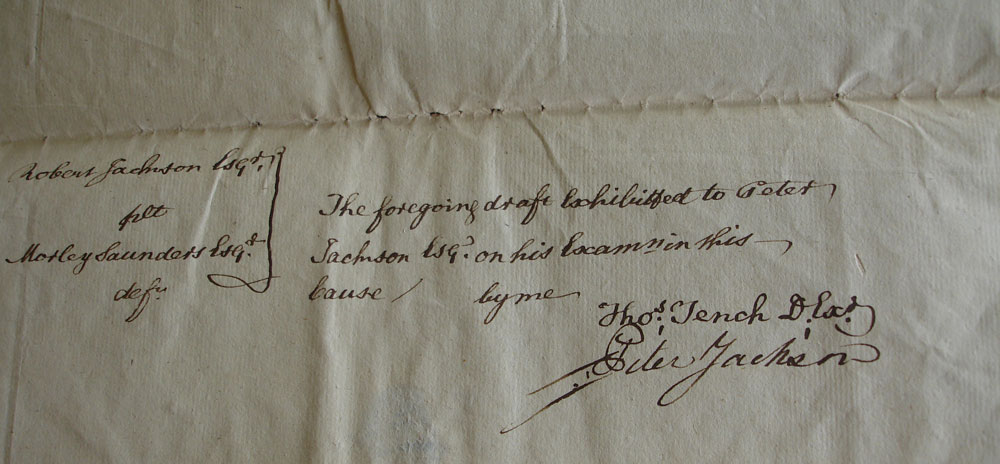 Robert Jackson Esqr.
plt
Morley Saunders Esqr.
deft
The foregoing draft Exhibitted to Peter
Jackson Esqr. on his Examn in this
Cause by me
Thos. Tench D. Exr.
Peter Jackson